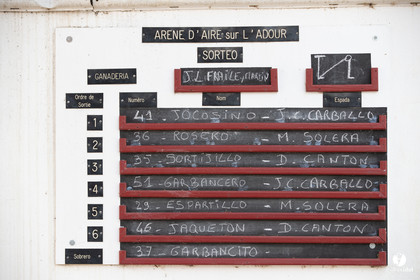 ARENE D'AIRE sur L'ADOUR
SORTEO
GANADERIA
J.L. FRAILE
Ordre de Sortie
Numéro
Nom
Espada
1 41 JOCOSINO - J.C. CARBALLO
2 36 ROSERO - M. SOLERA
3 35 SORTIJILLO - D. CANTON
4 51 GARBANCERO - J.C. CARBALLO
5 29 ESPARTILLO - M. SOLERA
6 46 JAQUETON - D. CANTON
Sobrero 37 GARBANCITO -